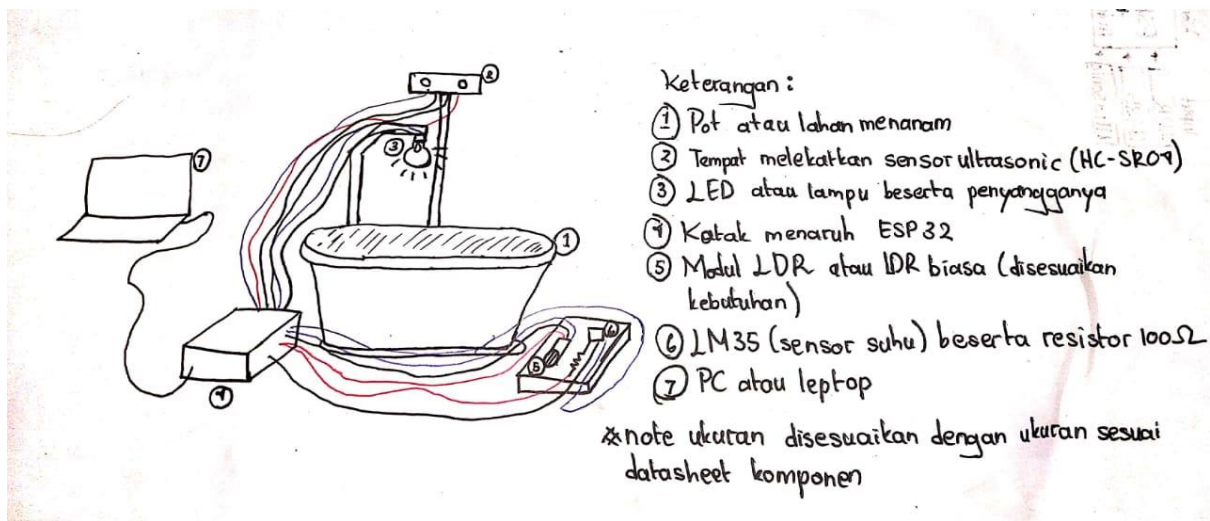 Keterangan :
① Pot atau lahan menanam
② Tempat melekatkan sensor ultrasonic (HC-SR04)
③ LED atau lampu beserta penyangganya
④ Kotak menaruh ESP32
⑤ Modul LDR atau LDR biasa (disesuaikan
kebutuhan)
⑥ LM35 (sensor suhu) beserta resistor 100Ω
⑦ PC atau leptop
※note ukuran disesuaikan dengan ukuran sesuai
datasheet komponen
②
③
⑦
①
⑥
⑤
④